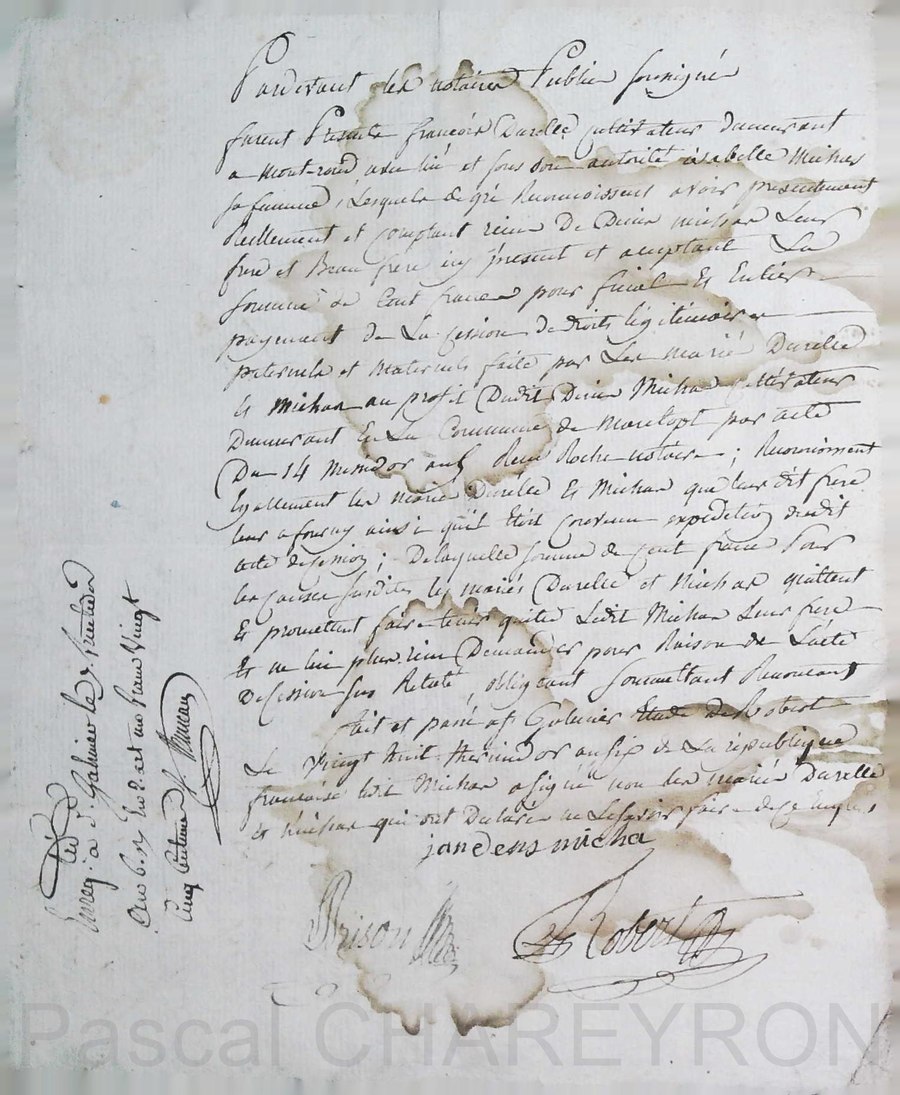 Pardevant les notaires Publics soussignés
furent Présents françois Durelle cultivateur demeurant
a Mont-rond avec lui et sous son autorité isabelle Michas
sa femme, Lesquels de gré Reconnoissent avoir présentement
Réellement et comptant reçu de Denis michas Leur
frere et Beau frere icy présent et acceptant La
somme de Cent francs pour final Et Entier
payement de La cession de droits légitimaires
paternels et maternels faite par Les mariés Durelle
Et Michas au profit Dudit Denis Michas cultivateur
Demeurant En La Commune de Marclopt par acte
Du 14 messidor an Reçu Roche notaire ; Reconnoissent
Egallement les mariés Durelle Et Michas que leur dit frere
leur a fourny ainsi qu'il Etoit convenu expedition dudit
acte de cession ; De laquelle somme de cent francs Pour
les causes susdites les mariés Durelle et Michas quittent
Et promettent faire tenir quitte Ledit Michas Leur frere
Et ne lui plus rien Demander pour Raison de L'acte
De Cession sus Relaté, obligeant soumettant Renonçant
fait et passé a Galmier Etude de Robert
Le Vingt huit thermidor an six de La république
française ledit Michas a signé non les mariés Durelle
Et Michas qui ont Déclaré ne Le savoir faire de ce Enquis
jandens micha
Brison
Robert
Enreg. a S. Galmier le fructidor
an 6. Reçu un franc Vingt
Cinq Centimes
Pascal CHAREYRON